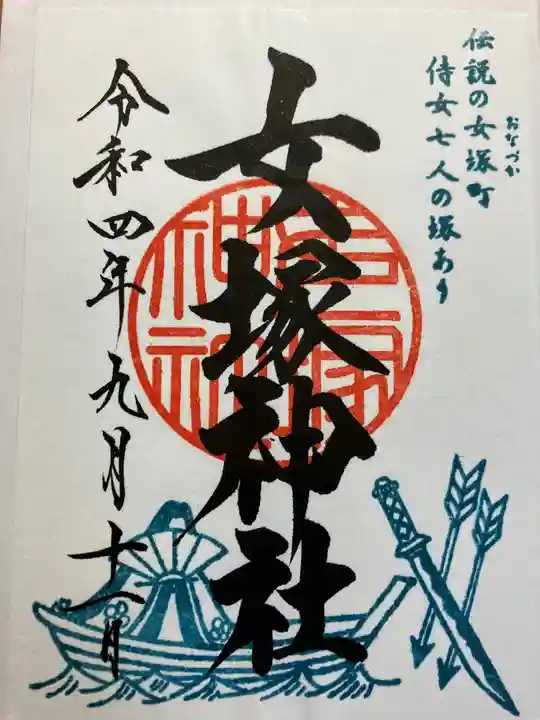 伝説の女塚町
おなづか
侍女七人の塚あり
女塚神社
令和四年九月十一日